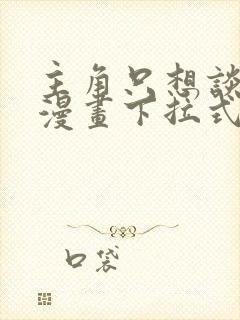 主角只想談
漫畫下拉式
口袋